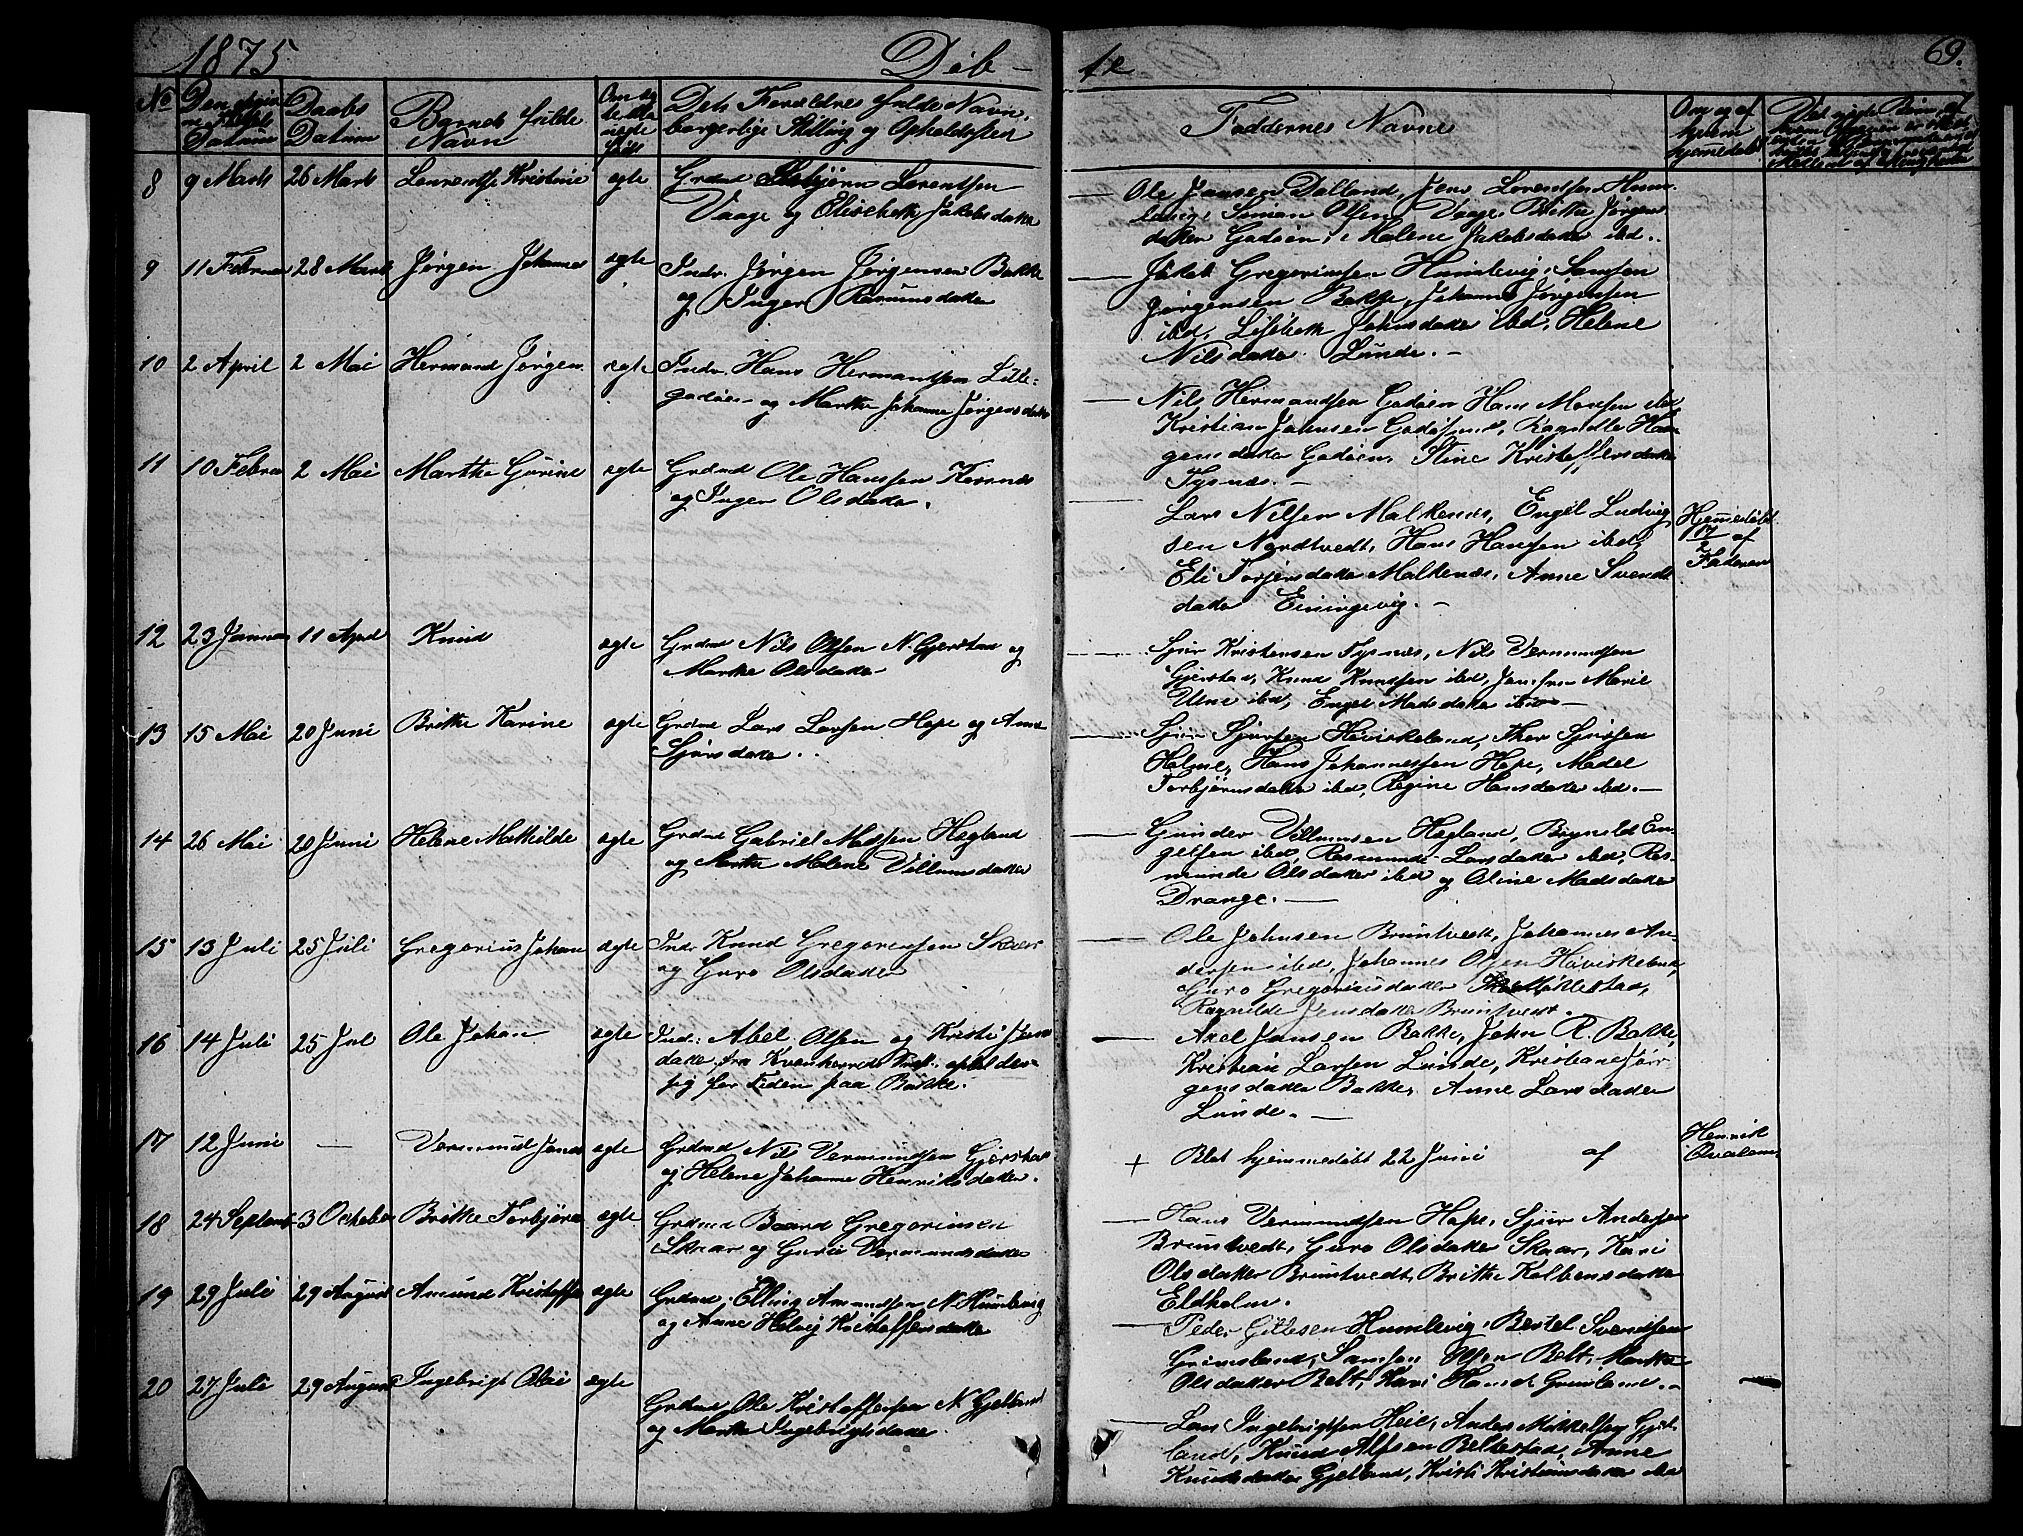 1875
Döb-
te
69.
No
Den
Datum
Daabs
Datum
Barnets fulde
Navn
Dets Forældres fulde Navn,
borgerlige Stilling og Opholdssted
Faddernes Navne
Om og af
hvem
hjemmedöbt
8 9 Marts 26 Marts Laurentse Kristine ægte Grdmd Lorentsen
Vaage og Elisebeth Jakobsdatter
Ole Jansen Dalland, Jens Lorentsen Hum-
levig, Simon Olsen Vaage, Brithe Jörgens
datter Godöen, Malene Jakobsdatter ibd.
9 11 Februar 28 Marts Jörgen Johannes ægte Indr. Jörgen Jörgensen Bakke
og Inger Rasmusdatter
Jakob Gregoriussen Humlevig, Samsen
Jörgensen Bakke, Johannes Jörgensen
ibd, Lisebeth Johnsdatter ibd, Helene
Nilsdatter Lunde. -
10 2 April 2 Mai Hermand Jörgen ægte Indr. Hans Hermandsen Lille-
godöen og Marthe Johanne Jörgensdatter
Nils Hermandsen Godöen Hans Monsen ibd
Kristian Jansen Godösund, Ragnilde Haa-
gensdatter Godöen, Stine Kristoffersdatter
Tysnæs. -
11 10 Februar 2 Mai Marthe Gurine ægte Grdmd Ole Hanssen
og Inger Olsdatter.
Lars Nilsen Malkenæs, Engel Ludvig
sen Nordtvedt, Hans Hansen ibd,
Eli Torjersdatter Malkenæs, Anne Svends
datter Einingevig. -
Hjemmedöbt
17/2 af
Faderen
12 23 Januar 11 April Knud ægte Grdmd Nils Olsen N. Gjerstad og
Marthe Olsdatter
Sjur Kristensen Tysnæs, Nils Vermundsen
Gjerstad, Knud Knudsen ibd, Jomfru Marie
ibd, Engel Madsdatter ibd -
13 15 Mai 20 Juni Brithe Karine ægte Grdmd Lars Larsen Hope og Anna
Sjursdatter.
Sjur Sjursen Höviskeland, Thor Sjursen
Holme, Hans Johannessen Hope, Madel
Torbjörnsdatter ibd, Regine Hansdatter ibd. -
14 26 Mai 20 Juni Helene Mathilde ægte Grdmd Gabriel Madsen Hegland
og Marthe Malene Villumsdatter
Gunder Villumsen Hegland, Brynild En-
gelsen ibd, Rasmunde Larsdatter ibd, Ras-
munde Olsdatter ibd og Oline Madsdatter
Drange. -
15 13 Juli 25 Juli Gregorius Johan ægte Indr Knud Gregoriussen Skaar
og Guro Olsdatter
Ole Johnsen Bruntvedt, Johannes An-
dersen ibd, Johannes Olsen Höviskeland,
Guro Gregoriusdatter Miklestad,
Ragnilde Jensdatter Bruntvedt.
16 14 Juli 25 Jul Ole Johan ægte Ind: Abel Olsen og Kristi Jens
datter, fra Kvenherred Præst., ophol der-
sig for Tiden paa Bakke.
Axel Jansen Bakke, John R. Bakke,
Kristian Larsen Lunde, Kristiane Jör-
gensdatter Bakke, Anne Larsdatter
Lunde. -
17 12 Juni - Vermund Jonas ægte Grdmd Nils Vermundsen Gjerstad
og Helene Johanne Henriksdatter.
+ Blot hjemmedöbt 22 Juni af Henrik
18 24 Septemb 3 October Brithe Torbjöra ægte Grdmd Baard Gregoriusen
Skaar og Guri Vermundsdatter
Hans Vermundsen Hope, Sjur Andersen
Bruntvedt, Guro Olsdatter Skaar, Kari
Olsdatter Bruntvedt, Brithe Kolbensdatter
Eldholm.
19 29 Juli 29 August Amund Kristoffer ægte Grdmd. Elling Amundsen N. Humlevig
og Anne Helvig Kristoffersdatter
Peder Gittesen Humlevig, Bertel Svendsen
Grimsland, Samson Olsen Belt, Marthe
Olsdatter Belt, Kari Hansd.
20 27 Juli 29 August Ingebrigt Olai ægte
Grdmd Ole Kristoffersen N. Gjetland
og Marthe Ingebrigtsdatter.
Lars Ingebrigtsen Heie, Anders Mikkelsen Gjet-
land, Knud Alfsen Beltestad, Anne
Knudsdatter Gjetland, Kristi Kristiansdatter ibd